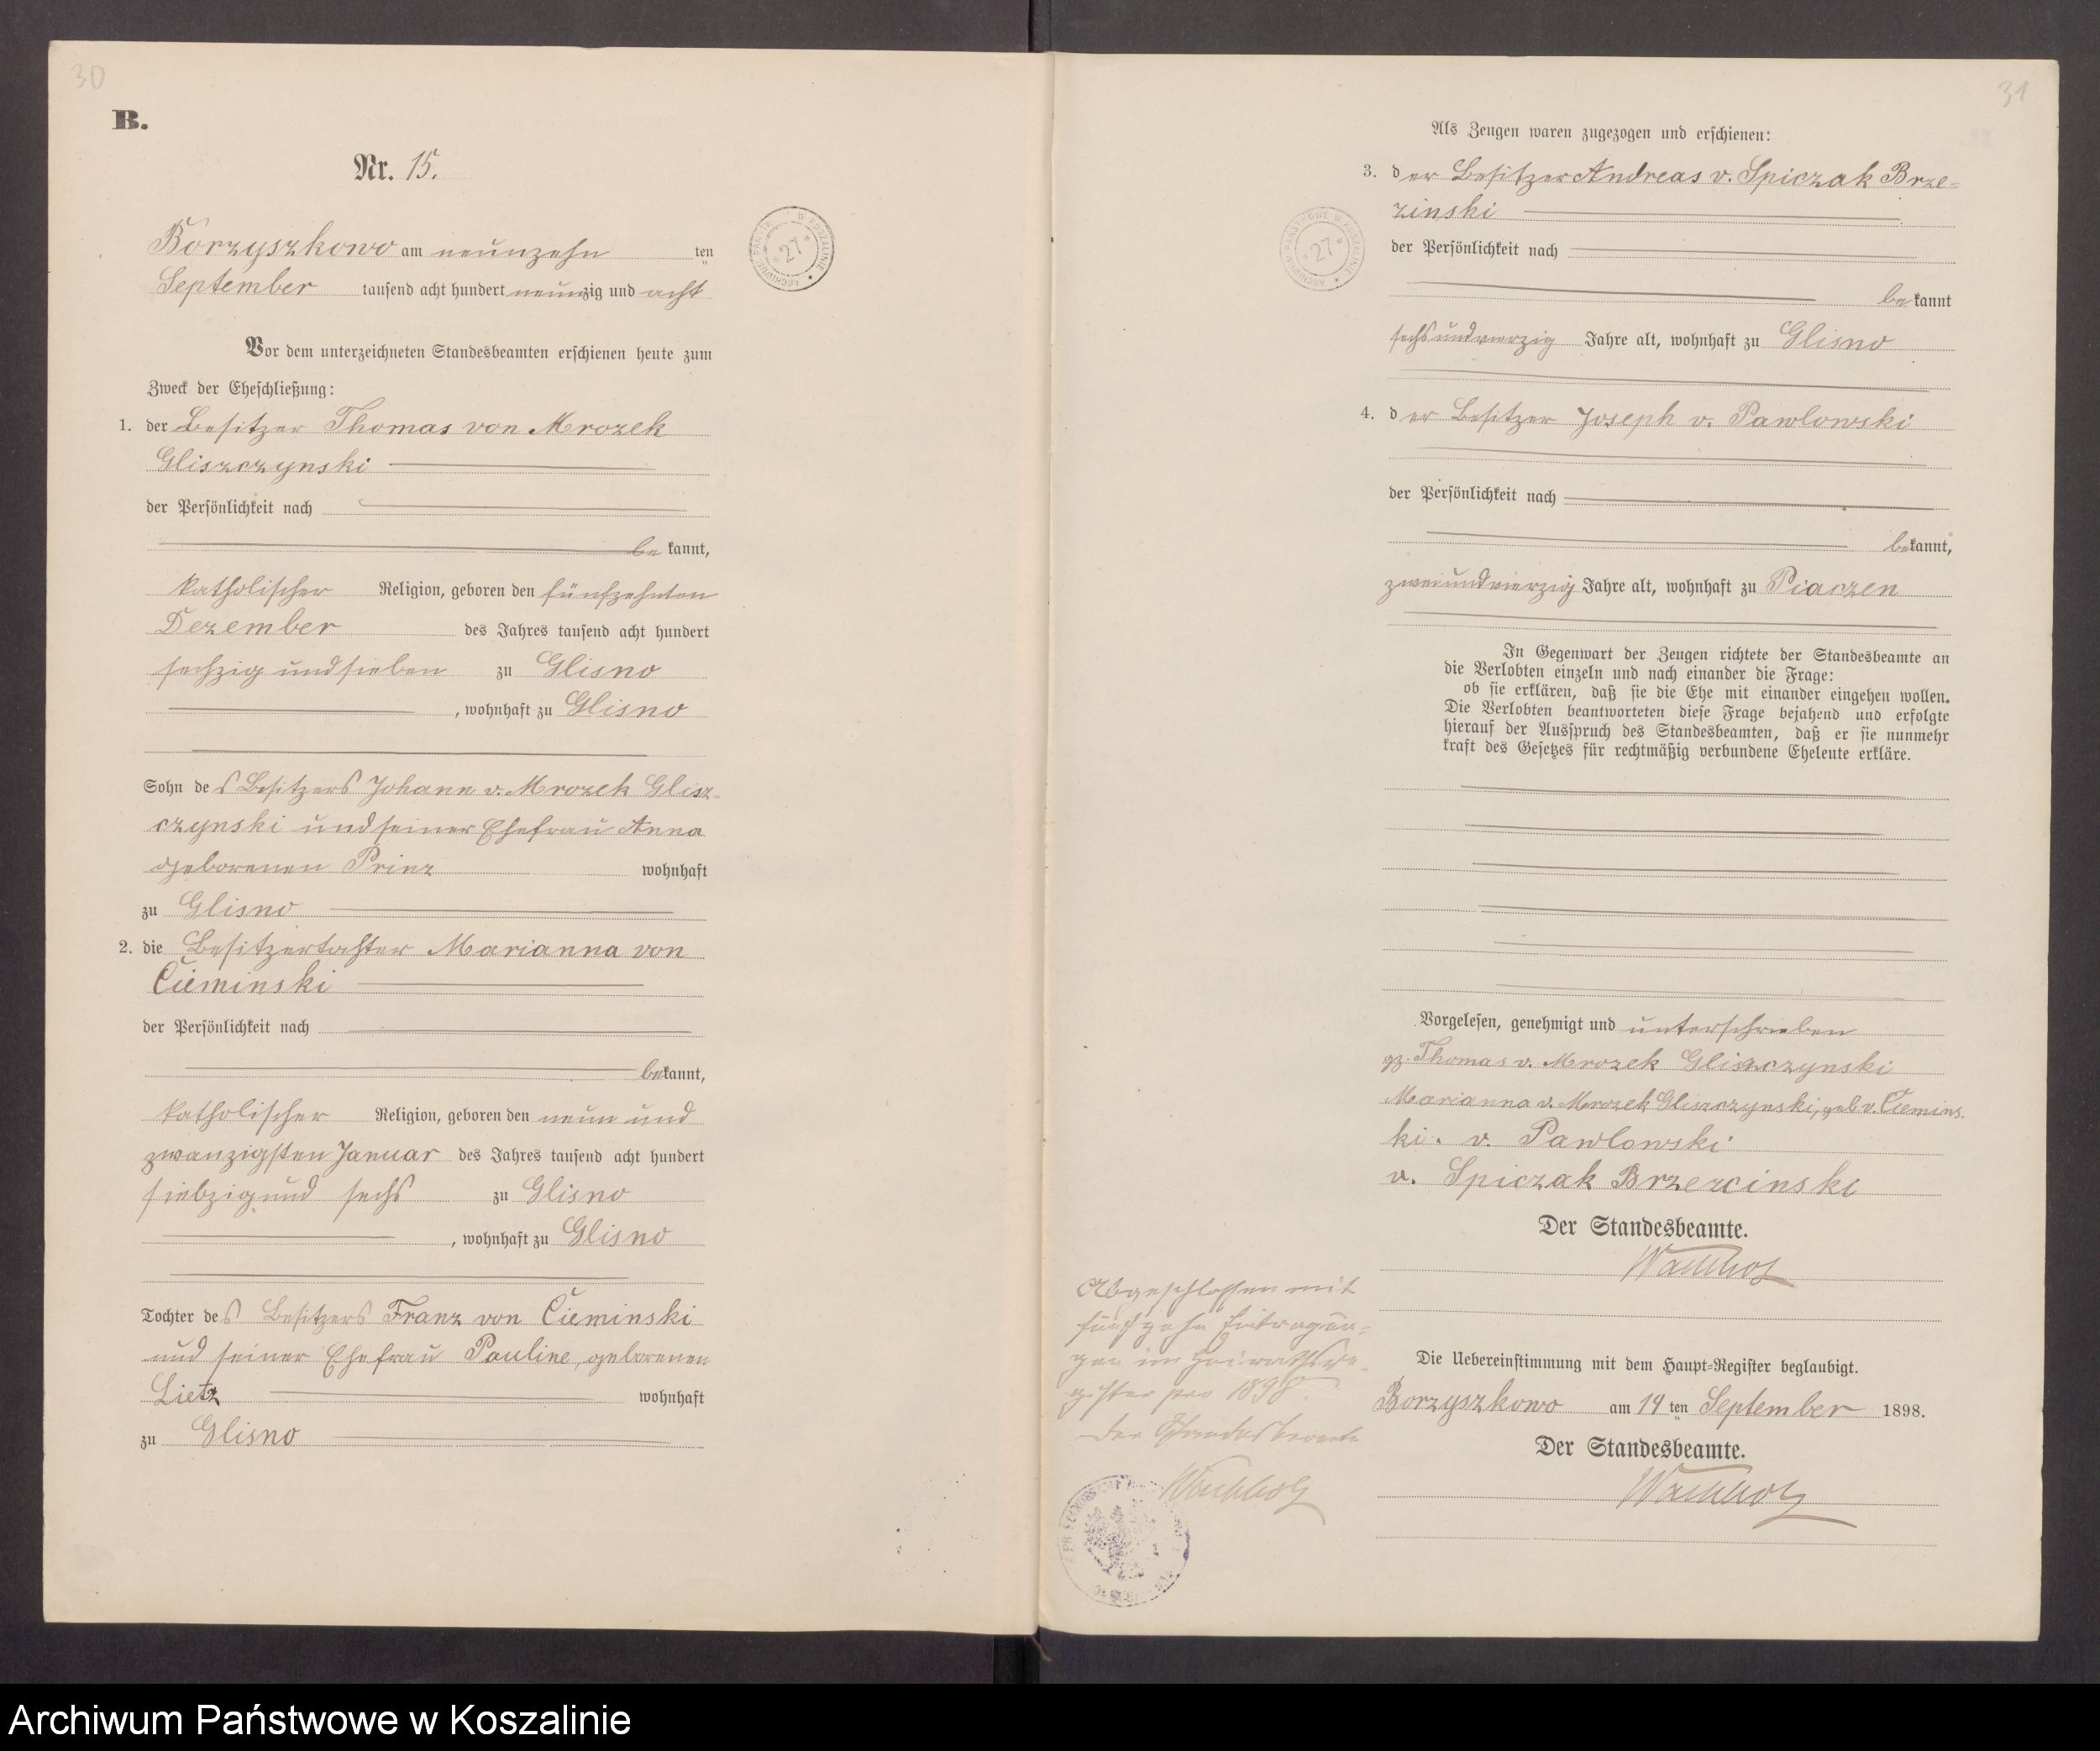 30
B.
Nr. 15.
Borzyszkowo am neunzehn ten
September tausend acht hundert neunzig und acht
Vor dem unterzeichneten Standesbeamten erschienen heute zum
Zweck der Eheschließung:
1. der Besitzer Thomas von Mrozek
Gliszczynski
der Persönlichkeit nach
be kannt,
katholischer Religion, geboren den fünfzehnten
Dezember des Jahres tausend acht hundert
sechzig und sieben zu Glisno
, wohnhaft zu Glisno
Sohn des Besitzers Johann v. Mrozek Glisz-
czynski und seiner Ehefrau Anna
geborenen Prinz wohnhaft
zu Glisno
2. die Besitzertochter Marianna von
Cieminski
der Persönlichkeit nach
bekannt,
katholischer Religion, geboren den neun und
zwanzigsten Januar des Jahres tausend acht hundert
siebzig und sechs zu Glisno
, wohnhaft zu Glisno
Tochter des Besitzers Franz von Cieminski
und seiner Ehefrau Pauline, geborenen
Lietz wohnhaft
zu Glisno
ARCHIWUM PAŃSTWOWE W KOSZALINIE
* 27 *
31
Als Zeugen waren zugezogen und erschienen:
3. der Besitzer Andreas v. Spiczak Brze-
zinski
der Persönlichkeit nach
be kannt
sechsundvierzig Jahre alt, wohnhaft zu Glisno
4. der Besitzer Joseph v. Pawlowski
der Persönlichkeit nach
bekannt,
zweiundvierzig Jahre alt, wohnhaft zu Piaczen
In Gegenwart der Zeugen richtete der Standesbeamte an
die Verlobten einzeln und nach einander die Frage:
ob sie erklären, daß sie die Ehe mit einander eingehen wollen.
Die Verlobten beantworteten diese Frage bejahend und erfolgte
hierauf der Ausspruch des Standesbeamten, daß er sie nunmehr
kraft des Gesetzes für rechtmäßig verbundene Eheleute erkläre.
Vorgelesen, genehmigt und unterschrieben
gz. Thomas v. Mrozek Gliszczynski
Marianna v. Mrozek Gliszczynski, geb v. Ciemins.
ki. v. Pawlowski
v. Spiczak Brzezcinski
Der Standesbeamte.
Wachholz
Die Uebereinstimmung mit dem Haupt-Register beglaubigt.
Borzyszkowo am 19 ten September 1898.
Der Standesbeamte.
Wachholz
Abgeschlossen mit
fünfzehn Eintragun-
gen im Heirathsre-
gister pro 1898.
Der Standesbeamte
Wachholz
ARCHIWUM PAŃSTWOWE W KOSZALINIE
* 27 *
Archiwum Państwowe w Koszalinie